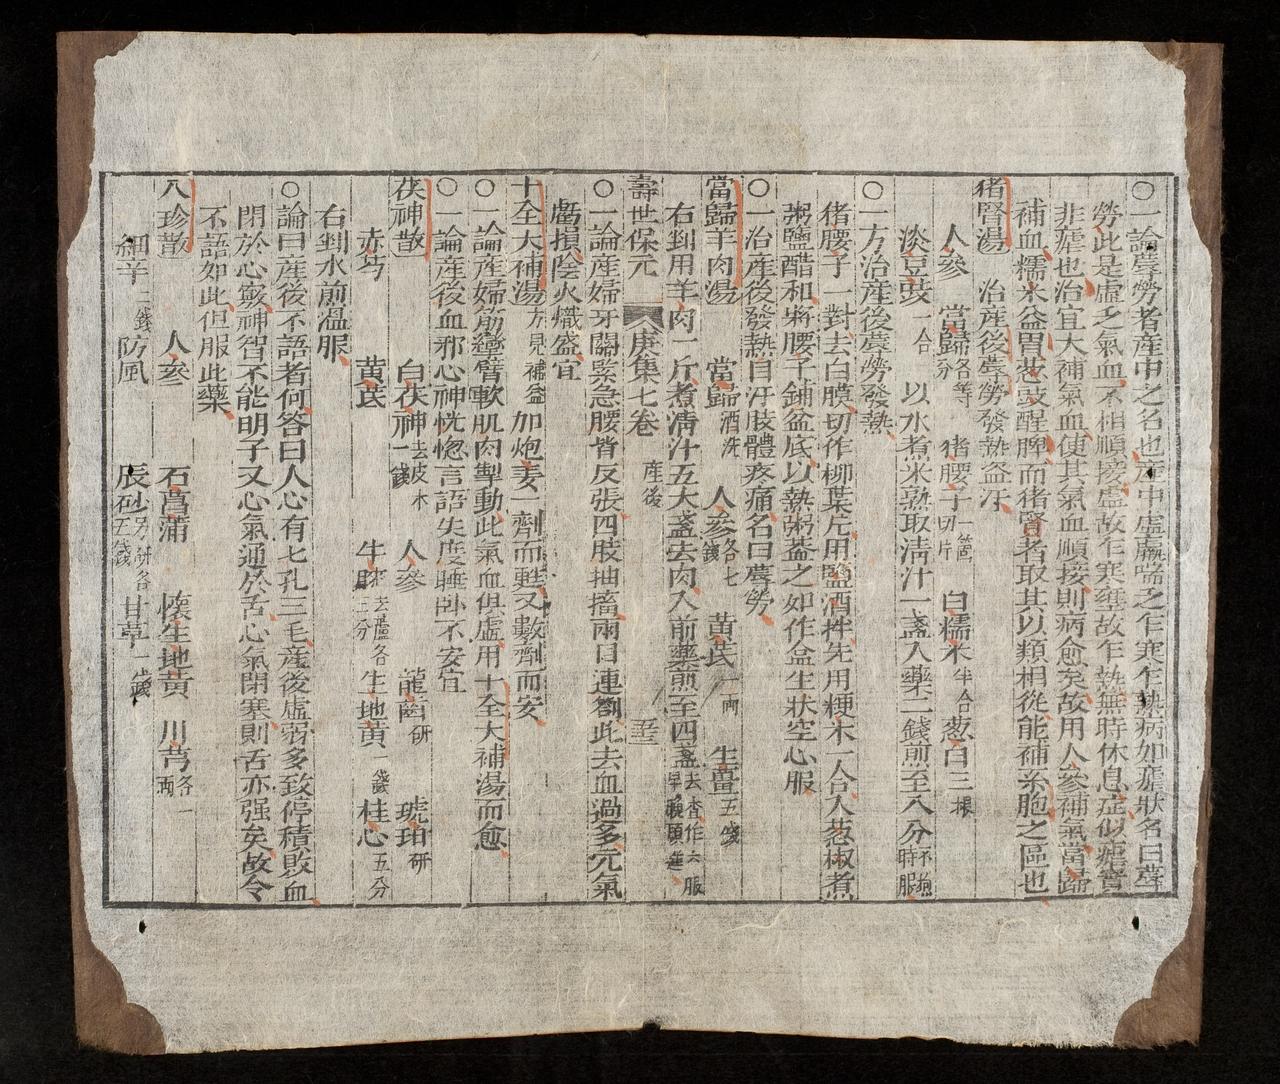 ○一論蓐勞者産中之名也産中虛羸喘之乍寒乍熱病如瘧狀名曰蓐
勞此是虛之氣血不相順接虛故乍寒壅故乍熱無時休息症似瘧實
非瘧也治宜大補氣血使其氣血順接則病愈矣故用人參補氣當歸
補血糯米益胃葱豉醒脾而猪腎者取其以類相從能補系胞之區也
猪腎湯 治産後蓐勞發熱盜汗
人參 當歸各等分 猪腰子一箇切片 白糯米半合 葱白三根
淡豆豉一合 以水煮米熟取清汁一盞入藥二錢煎至八分不拘時服
○一方治産後蓐勞發熱
猪腰子一對去白膜切作柳葉片用鹽酒拌先用粳米一合入葱椒煮
粥鹽醋和將腰子鋪盆底以熱粥盖之如作盒生狀空心服
○一治産後發熱自汗肢體疼痛名曰蓐勞
當歸羊肉湯 當歸酒洗 人參各七錢 黄芪一兩 生薑五錢
右剉用羊肉一斤煮清汁五大盞去肉入前藥煎至四盞去査作六服早晚頓進
壽世保元 庚集七卷 産後
○一論産婦牙關緊急腰背反張四肢抽搐兩目連劄此去血過多元氣
虧損陰火熾盛宜
十全大補湯方見補益 加炮姜一劑而甦又數劑而安
○一論産婦筋攣臂軟肌肉掣動此氣血俱虛用十全大補湯而愈
○一論産後血邪心神恍惚言語失度睡卧不安宜
茯神散 白茯神去皮木一錢 人參 龍齒研 琥珀研
赤芍 黄芪 牛膝去蘆各三分 生地黄一錢 桂心五分
右剉水煎溫服
○論曰産後不語者何答曰人心有七孔三毛産後虛弱多致停積敗血
閉於心竅神智不能明子又心氣通於舌心氣閉塞則舌亦强矣故令
不語如此但服此藥
八珍散 人參 石菖蒲 懷生地黄 川芎各一兩
細辛二錢 防風 辰砂另研各五錢 甘草一錢